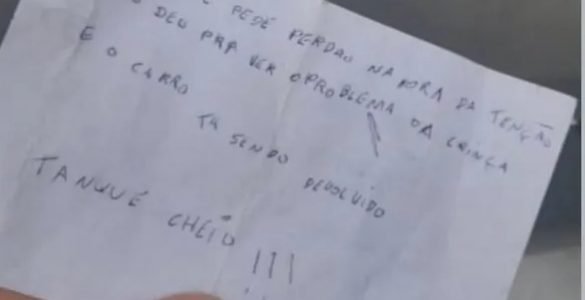 E PEDE PERDAO NA HORA DA TENÇÃO
DEU PRA VER O PROBLEMA DA CRINÇA
E O CARRO TA SENDO DEVOLVIDO
TANQUE CHEIO !!!